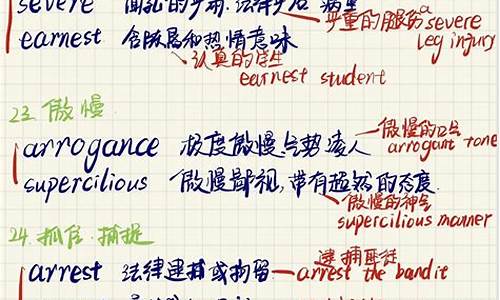 severe
严重的服伤 a severe leg injury
earnest 含脓局和热情意味
认真的学生
earnest student
23. 傲慢
arrogance 极度傲慢气势凌人
傲慢的口气
arrogant tone
supercilious 傲慢鄙视,带有超然的态度.
傲慢的神气
supercilious manner
24. 抓住. 捕捉
arrest 法律逮捕或拘留
逮捕匪徒
arrest the bandit